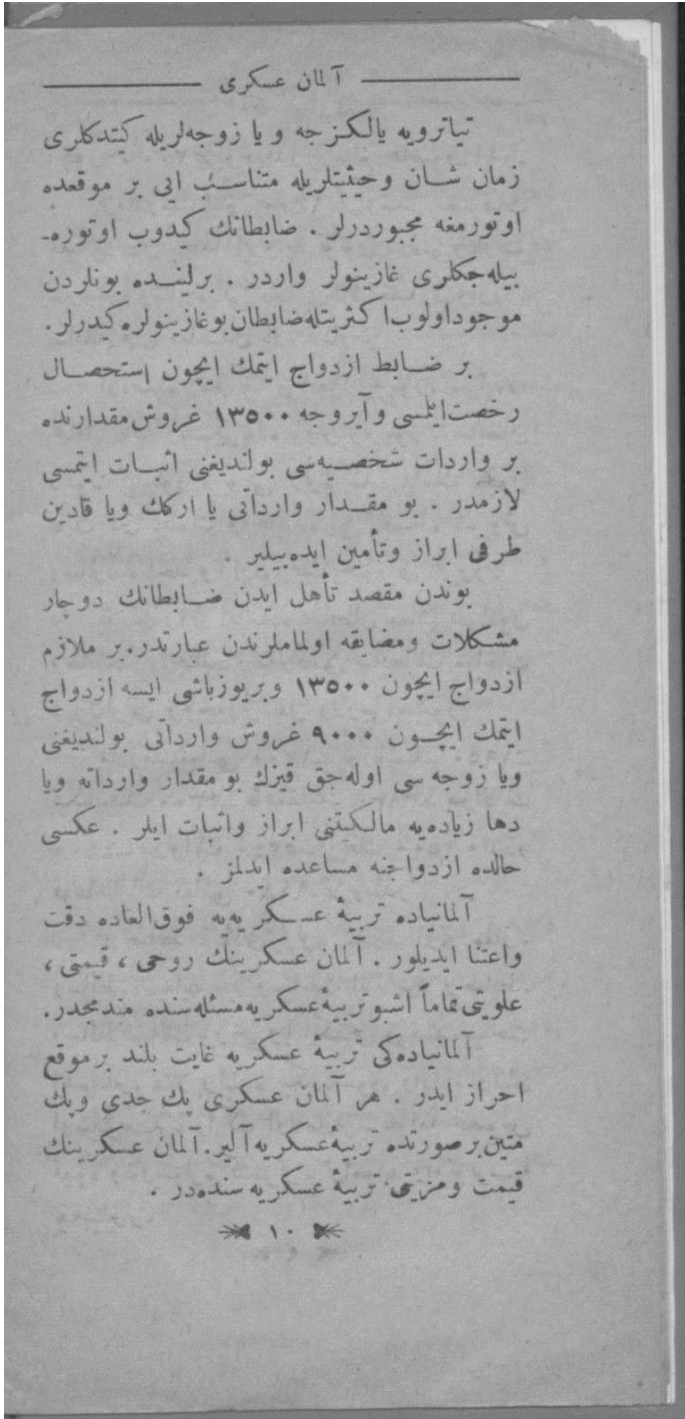 آلمان عسكرى
تياترويه يالكزجه و يا زوجه‌لريله كيتدكلرى
زمان شان وحيثيتلريله متناسب ايى بر موقعده
اوتورمغه مجبوردرلر . ضابطانك كيدوب اوتوره-
بيله‌جكلرى غازينولر واردر . برلينده بونلردن
موجود اولوب اكثريتله ضابطان بو غازينولره كيدرلر.
بر ضابط ازدواج ايتمك ايچون استحصال
رخصت ايلمسى و آيروجه ١٣٥٠٠ غروش مقدارنده
بر واردات شخصيه‌سى بولنديغنى اثبات ايتمسى
لازمدر . بو مقدار وارداتى يا اركك ويا قادين
طرفى ابراز وتأمين ايده‌بيلير .
بوندن مقصد تأهل ايدن ضابطانك دوچار
مشكلات ومضايقه اولماملرندن عبارتدر. بر ملازم
ازدواج ايچون ١٣٥٠٠ وبريوزباشى ايسه ازدواج
ايتمك ايچون ٩٠٠٠ غروش وارداتى بولنديغنى
ويا زوجه سى اوله‌جق قيزك بو مقدار وارداته ويا
دها زياده‌يه مالكيتنى ابراز واثبات ايلر . عكسى
حالده ازدواجنه مساعده ايدلمز .
آلمانياده تربيهٔ عسكريه‌يه فوق‌العاده دقت
واعتنا ايديلور . آلمان عسكرينك روحى ، قيمتى ،
علويتى تماماً اشبو تربيهٔ عسكريه مسئله‌سنده مندمجدر.
آلمانياده‌كى تربيهٔ عسكريه غايت بلند بر موقع
احراز ايدر . هر آلمان عسكرى پك جدى وپك
متين بر صورتده تربيهٔ عسكريه آلير. آلمان عسكرينك
قيمت ومزيتى تربيهٔ عسكريه سنده‌در .
١٠